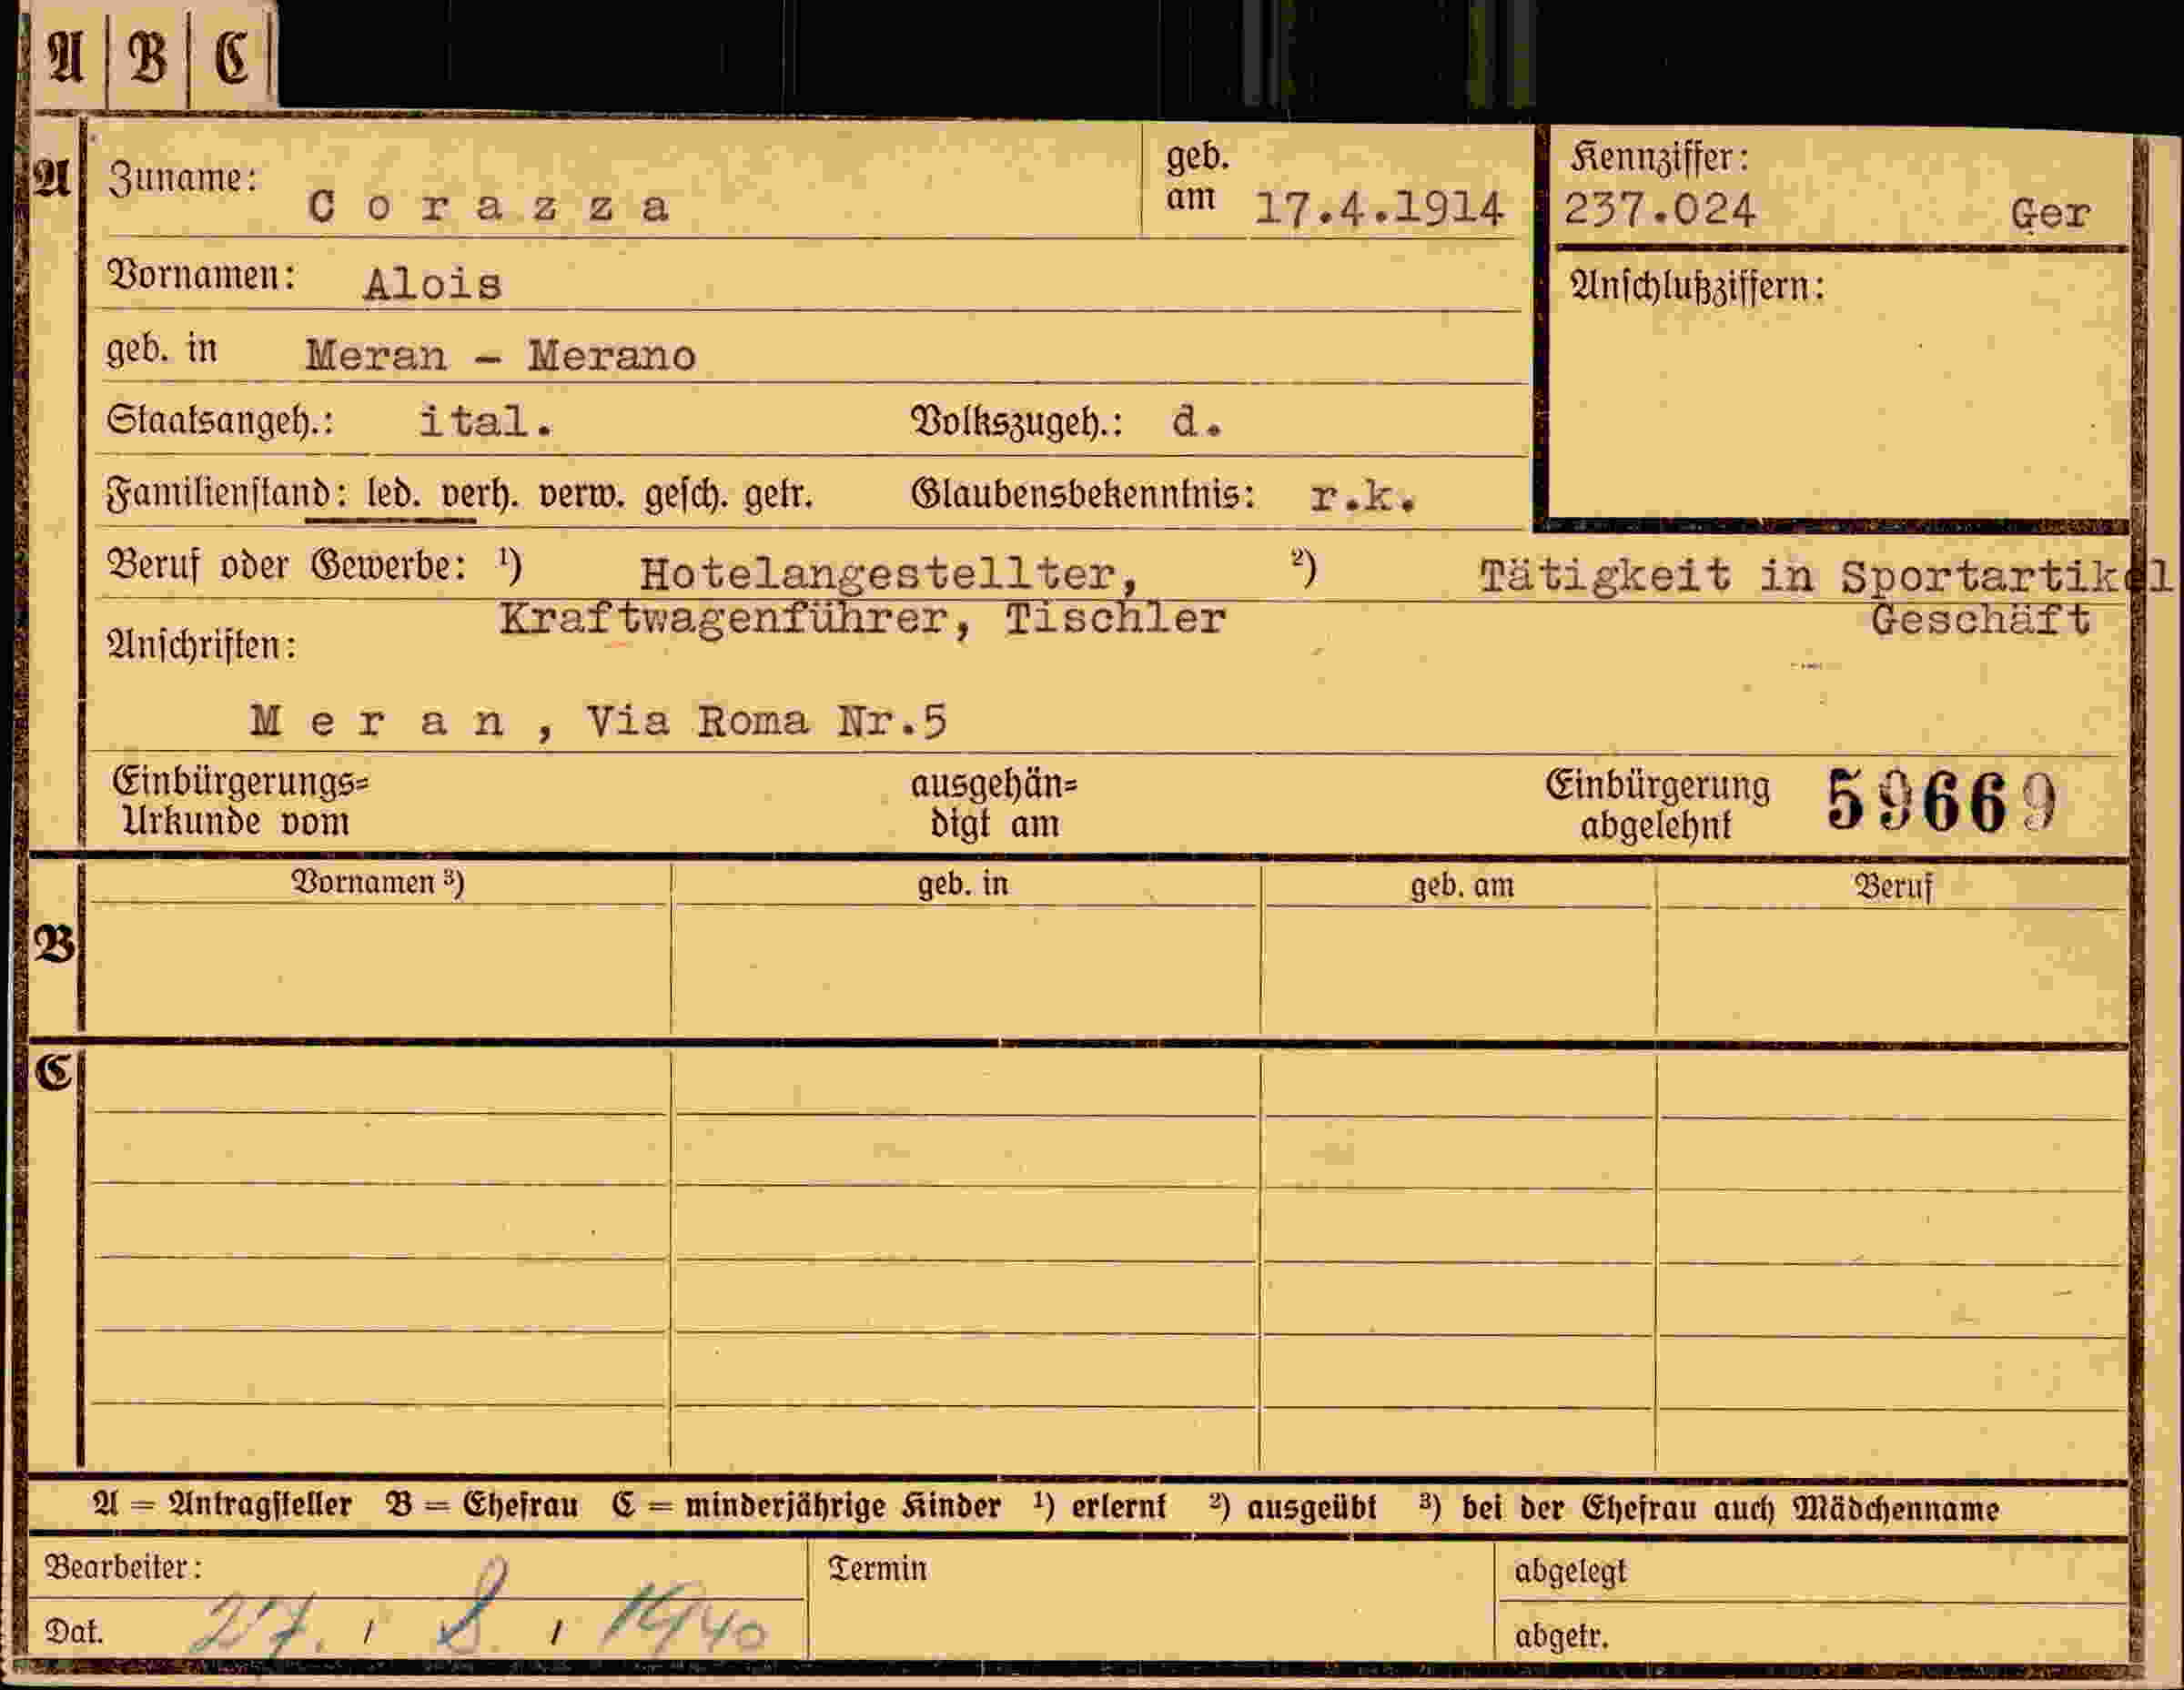 A B C
A Zuname: Corazza geb. am 17.4.1914 Kennziffer: 237.024 Ger
Vornamen: Alois Anschlußziffern:
geb. in Meran - Merano
Staatsangeh.: ital. Volkszugeh.: d.
Familienstand: led. verh. verw. gesch. getr. Glaubensbekenntnis: r.k.
Beruf oder Gewerbe: ¹) Hotelangestellter, ²) Tätigkeit in Sportartikel
Kraftwagenführer, Tischler Geschäft
Anschriften:
Meran, Via Roma Nr.5
Einbürgerungs= ausgehän= Einbürgerung 59669
Urkunde vom digt am abgelehnt
Vornamen ³) geb. in geb. am Beruf
B
C
A = Antragsteller B = Ehefrau C = minderjährige Kinder ¹) erlernt ²) ausgeübt ³) bei der Ehefrau auch Mädchenname
Bearbeiter: Termin abgelegt
Dat. 27. / 8. / 1940 abgetr.